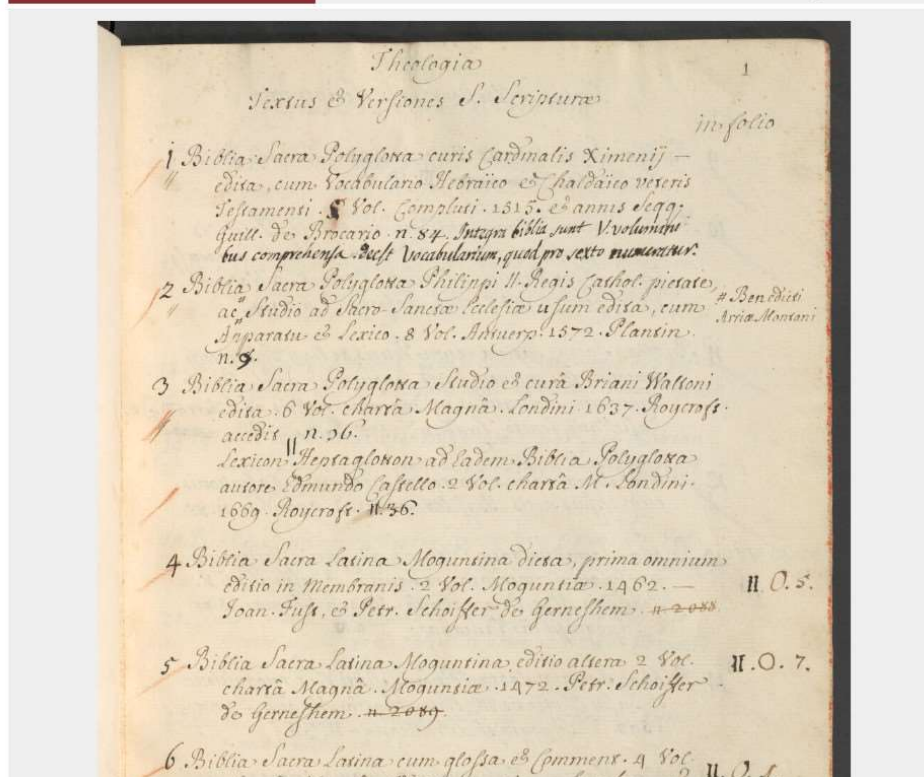 Theologia
1
Textus & Versiones S. Scripturæ
in folio
1 Biblia Sacra Polyglotta curis Cardinalis Ximenij —
edita, cum Vocabulario Hebraïco & Chaldaïco veteris
Testamenti. Vol. Compluti. 1515. & annis seqq.
Guill. de Brocario. n. 84. Integra biblia sunt V. volumini
bus comprehensa. Deest Vocabularium, quod pro sexto numeratur.
2 Biblia Sacra Polyglotta Philippi II. Regis Cathol. pietate,
ac Studio ad Sacro-Sanctæ Ecclesiæ usum edita, cum # Benedicti
Apparatu & Lexico. 8 Vol. Antuerp. 1572. Plantin. Ariæ Montani
n. 9.
3 Biblia Sacra Polyglotta Studio & curâ Briani Waltoni
edita. 6 Vol. chartâ Magnâ. Londini. 1637. Roycroft.
accedit n. 36.
Lexicon Heptaglotton ad Eadem Biblia Polyglotta
autore Edmundo Castello. 2 Vol. chartâ M. Londini.
1669. Roycroft. n. 36.
4 Biblia Sacra Latina Moguntina dicta, prima omnium
editio in Membranis. 2 Vol. Moguntiæ. 1462. — II. O. 5.
Joan. Fust, & Petr. Schoiffer de Gernsshem. n. 2088
5 Biblia Sacra Latina Moguntina, editio altera 2 Vol. II. O. 7.
chartâ Magnâ. Moguntiæ. 1472. Petr. Schoiffer
de Gernesshem. n. 2089.
6 Biblia Sacra Latina cum glossa & Comment. 4 Vol.